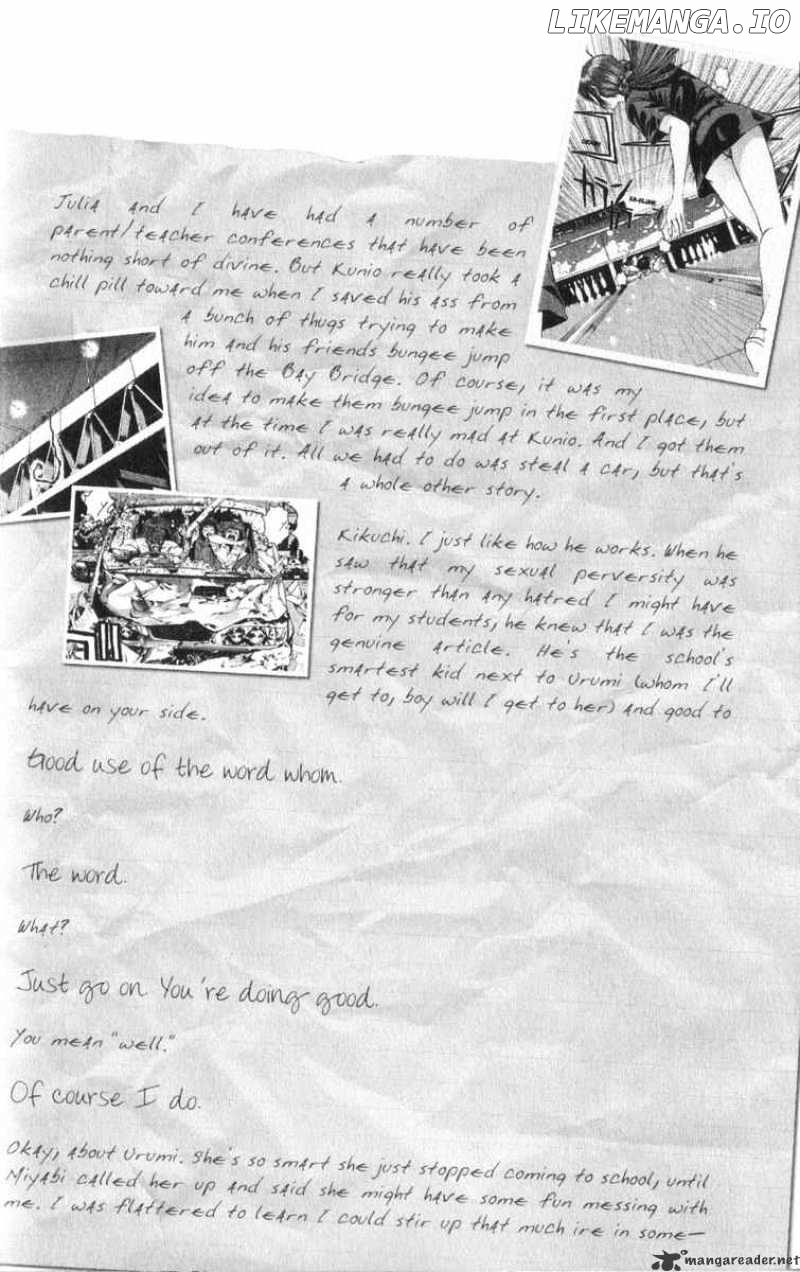 LIKEMANGA.IO
Julia and I have had a number of
parent/teacher conferences that have been
nothing short of divine. But Kunio really took a
chill pill toward me when I saved his ass from
a bunch of thugs trying to make
him and his friends bungee jump
off the Bay Bridge. Of course, it was my
idea to make them bungee jump in the first place, but
at the time I was really mad at Kunio. And I got them
out of it. All we had to do was steal a car, but that's
a whole other story.
Kikuchi. I just like how he works. When he
saw that my sexual perversity was
stronger than any hatred I might have
for my students, he knew that I was the
genuine article. He's the school's
smartest kid next to Urumi (whom I'll
get to, boy will I get to her) and good to
have on your side.
Good use of the word whom.
Who?
The word.
What?
Just go on. You're doing good.
You mean "well."
Of course I do.
Okay, about Urumi. She's so smart she just stopped coming to school, until
Miyabi called her up and said she might have some fun messing with
me. I was flattered to learn I could stir up that much ire in some—
mangareader.net